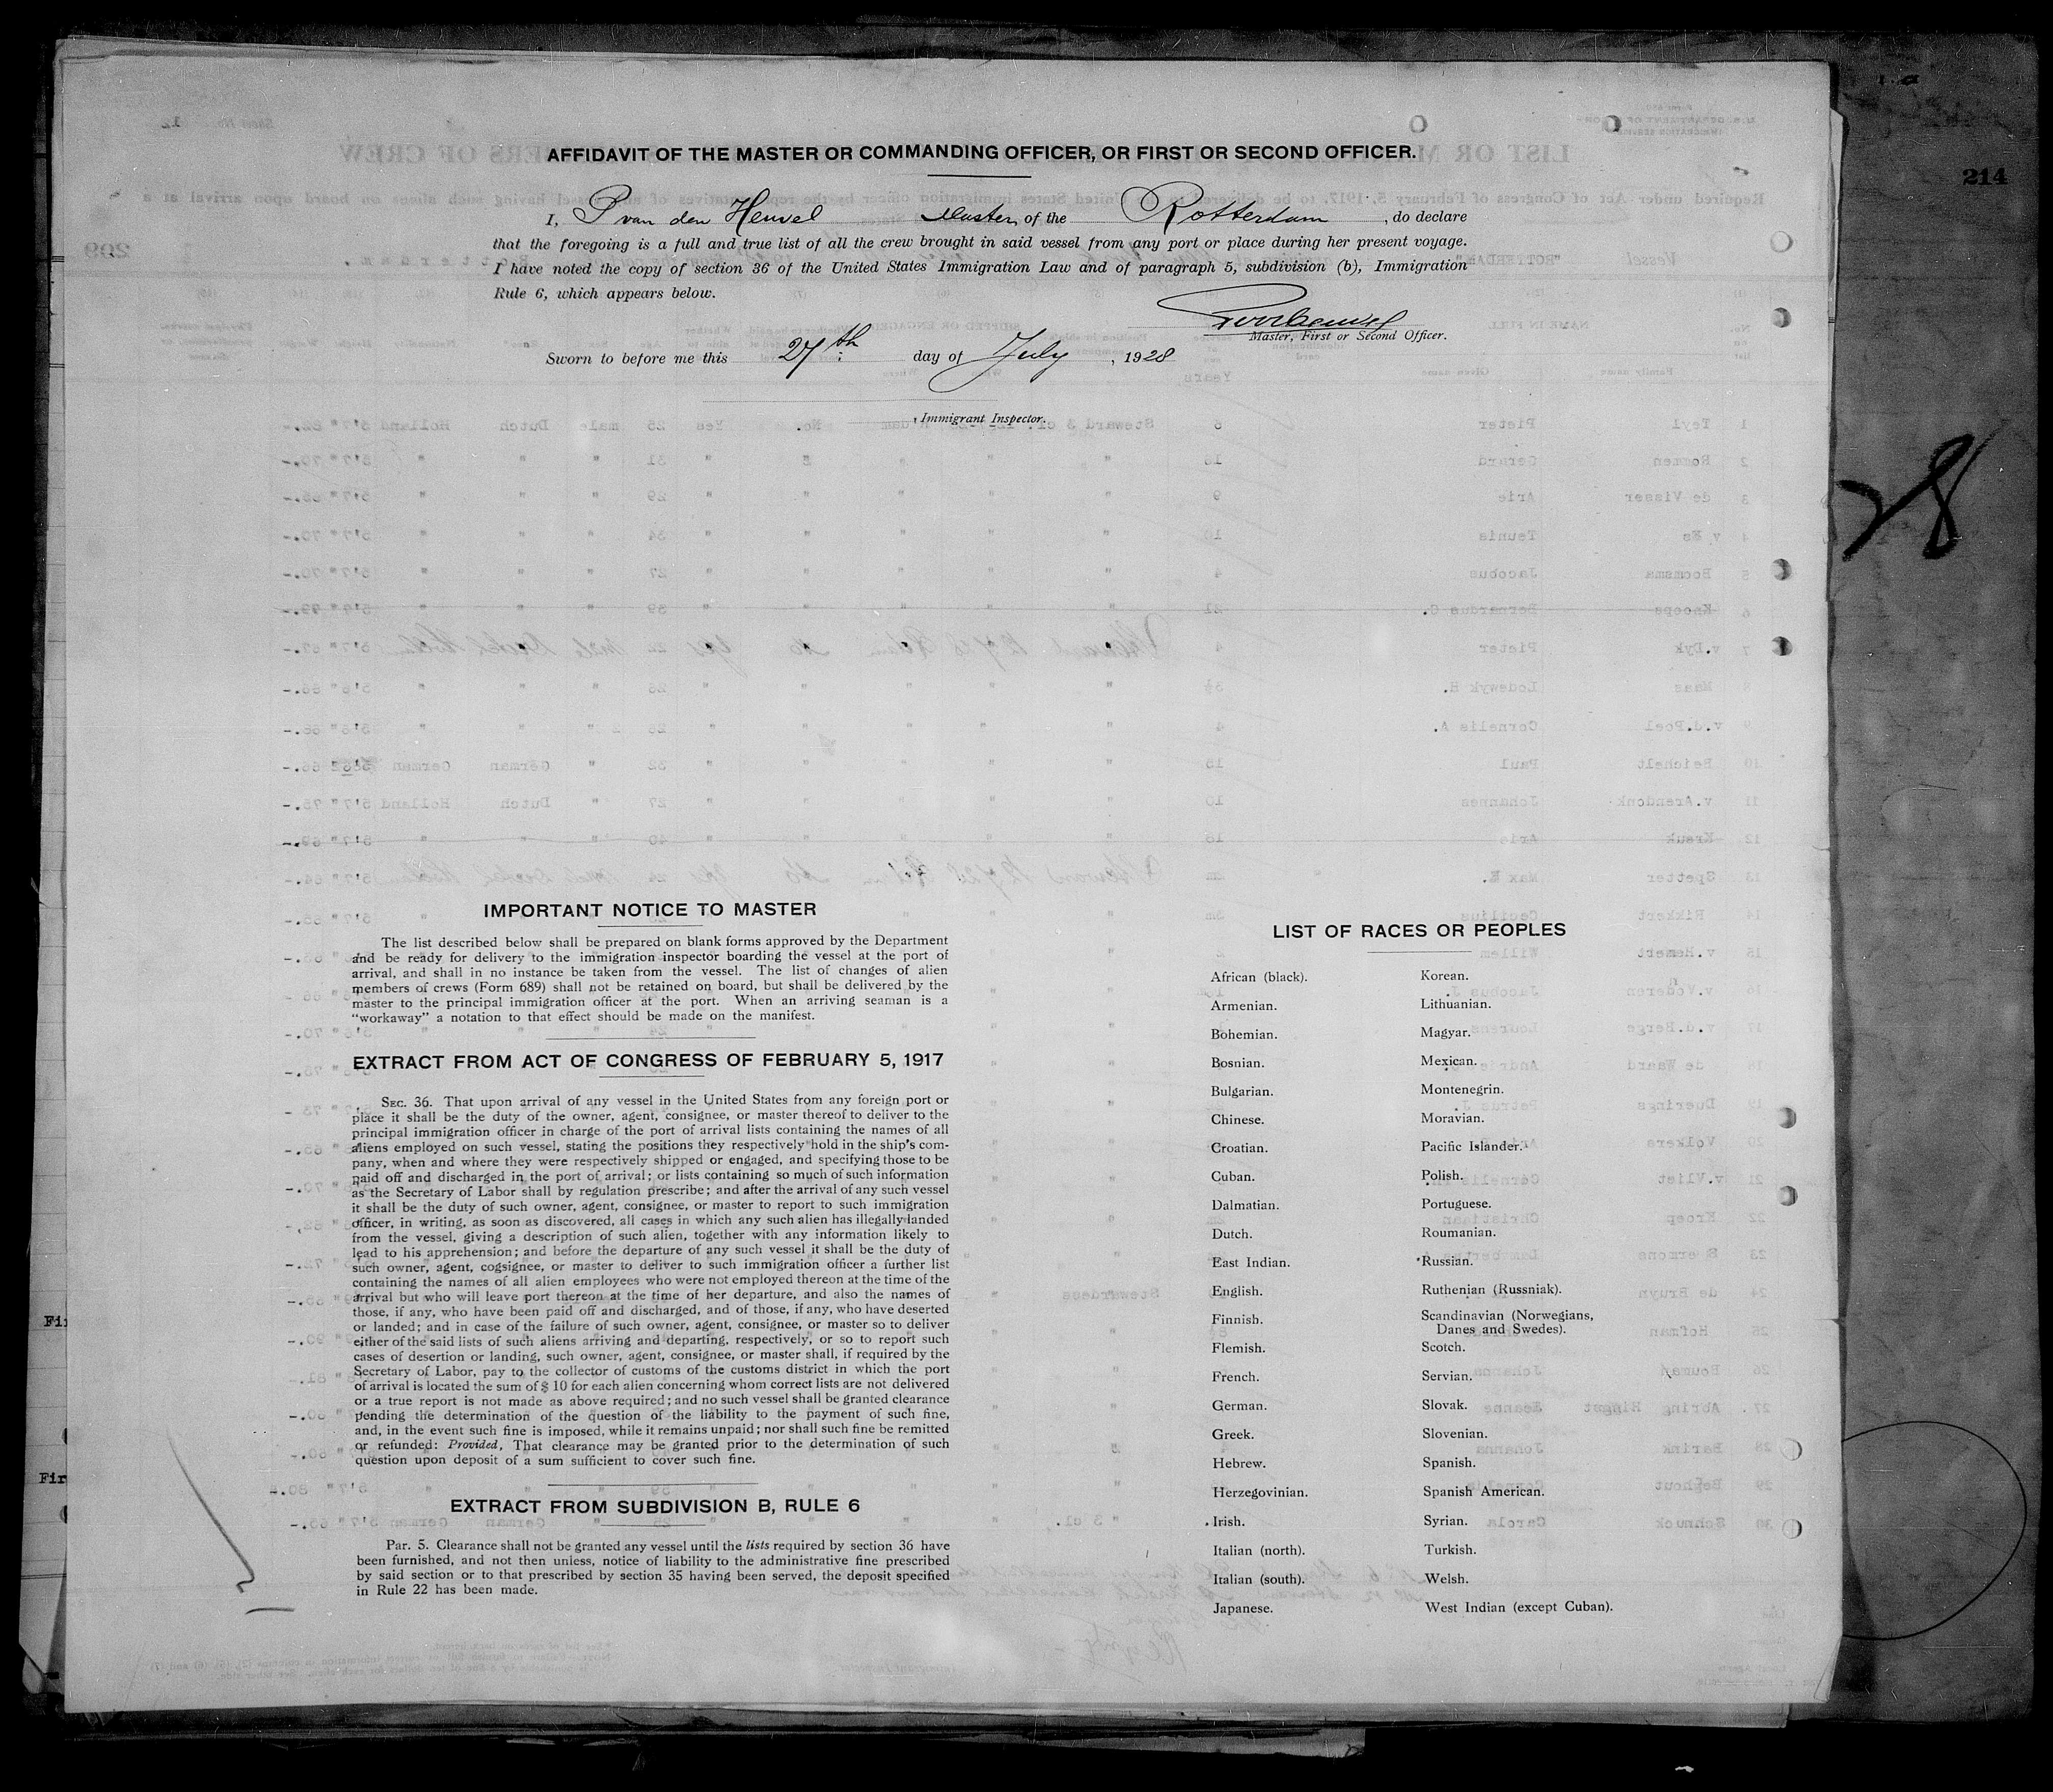 214
AFFIDAVIT OF THE MASTER OR COMMANDING OFFICER, OR FIRST OR SECOND OFFICER.
I, P van den Heuvel Master, of the Rotterdam, do declare
that the foregoing is a full and true list of all the crew brought in said vessel from any port or place during her present voyage.
I have noted the copy of section 36 of the United States Immigration Law and of paragraph 5, subdivision (b), Immigration
Rule 6, which appears below.
Master, First or Second Officer.
Sworn to before me this 27th day of July, 1928
, Immigrant Inspector.
28
IMPORTANT NOTICE TO MASTER
The list described below shall be prepared on blank forms approved by the Department
and be ready for delivery to the immigration inspector boarding the vessel at the port of
arrival, and shall in no instance be taken from the vessel. The list of changes of alien
members of crews (Form 689) shall not be retained on board, but shall be delivered by the
master to the principal immigration officer at the port. When an arriving seaman is a
“workaway” a notation to that effect should be made on the manifest.
EXTRACT FROM ACT OF CONGRESS OF FEBRUARY 5, 1917
SEC. 36. That upon arrival of any vessel in the United States from any foreign port or
place it shall be the duty of the owner, agent, consignee, or master thereof to deliver to the
principal immigration officer in charge of the port of arrival lists containing the names of all
aliens employed on such vessel, stating the positions they respectively hold in the ship's com-
pany, when and where they were respectively shipped or engaged, and specifying those to be
paid off and discharged in the port of arrival; or lists containing so much of such information
as the Secretary of Labor shall by regulation prescribe; and after the arrival of any such vessel
it shall be the duty of such owner, agent, consignee, or master to report to such immigration
officer, in writing, as soon as discovered, all cases in which any such alien has illegally landed
from the vessel, giving a description of such alien, together with any information likely to
lead to his apprehension; and before the departure of any such vessel it shall be the duty of
such owner, agent, cogsignee, or master to deliver to such immigration officer a further list
containing the names of all alien employees who were not employed thereon at the time of the
arrival but who will leave port thereon at the time of her departure, and also the names of
those, if any, who have been paid off and discharged, and of those, if any, who have deserted
or landed; and in case of the failure of such owner, agent, consignee, or master so to deliver
either of the said lists of such aliens arriving and departing, respectively, or so to report such
cases of desertion or landing, such owner, agent, consignee, or master shall, if required by the
Secretary of Labor, pay to the collector of customs of the customs district in which the port
of arrival is located the sum of $ 10 for each alien concerning whom correct lists are not delivered
or a true report is not made as above required; and no such vessel shall be granted clearance
pending the determination of the question of the liability to the payment of such fine,
and, in the event such fine is imposed, while it remains unpaid; nor shall such fine be remitted
or refunded: Provided, That clearance may be granted prior to the determination of such
question upon deposit of a sum sufficient to cover such fine.
EXTRACT FROM SUBDIVISION B, RULE 6
Par. 5. Clearance shall not be granted any vessel until the lists required by section 36 have
been furnished, and not then unless, notice of liability to the administrative fine prescribed
by said section or to that prescribed by section 35 having been served, the deposit specified
in Rule 22 has been made.
LIST OF RACES OR PEOPLES
African (black).
Armenian.
Bohemian.
Bosnian.
Bulgarian.
Chinese.
Croatian.
Cuban.
Dalmatian.
Dutch.
East Indian.
English.
Finnish.
Flemish.
French.
German.
Greek.
Hebrew.
Herzegovinian.
Irish.
Italian (north).
Italian (south).
Japanese.
Korean.
Lithuanian.
Magyar.
Mexican.
Montenegrin.
Moravian.
Pacific Islander.
Polish.
Portuguese.
Roumanian.
Russian.
Ruthenian (Russniak).
Scandinavian (Norwegians,
Danes and Swedes).
Scotch.
Servian.
Slovak.
Slovenian.
Spanish.
Spanish American.
Syrian.
Turkish.
Welsh.
West Indian (except Cuban).